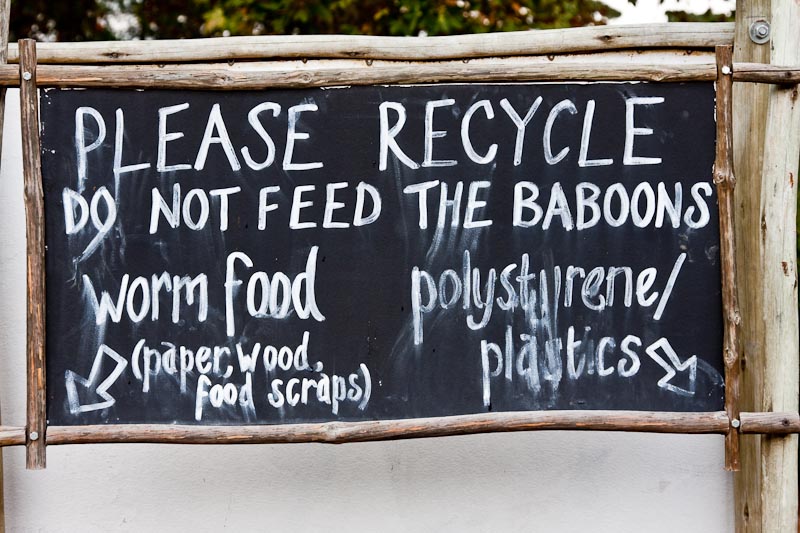 PLEASE RECYCLE
DO NOT FEED THE BABOONS
worm food
(paper, wood,
food scraps)
polystyrene/
plastics